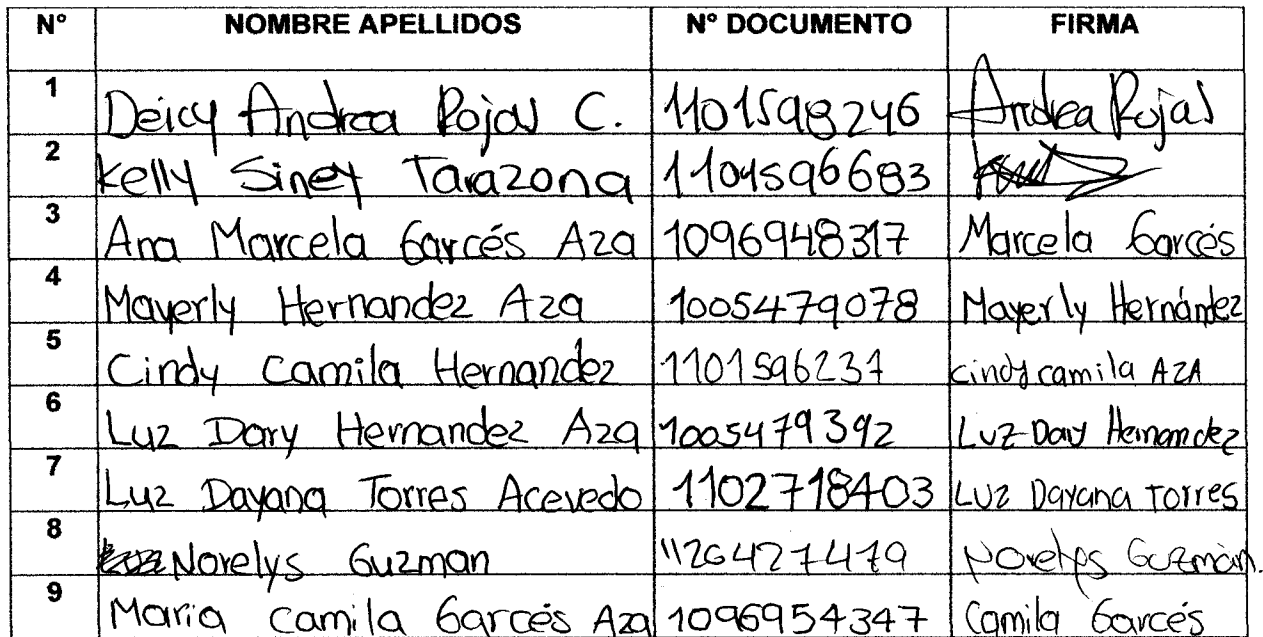 N° NOMBRE APELLIDOS N° DOCUMENTO FIRMA
1 Deicy Andrea Rojas C. 1101598246 Andrea Rojas
2 Kelly Siney Tarazona 1101596683
3 Ana Marcela Garcés Aza 1096948317 Marcela Garcés
4 Mayerly Hernandez Aza 1005479078 Mayerly Hernández
5 Cindy Camila Hernandez 1101596237 cindy camila AZA
6 Luz Dary Hernandez Aza 1005479392 Luz Dary Hernandez
7 Luz Dayana Torres Acevedo 1102718403 Luz Dayana Torres
8 Norelys Guzman 1126427479 Norelys Guzmán.
9 Maria Camila Garcés Aza 1096954347 Camila Garcés